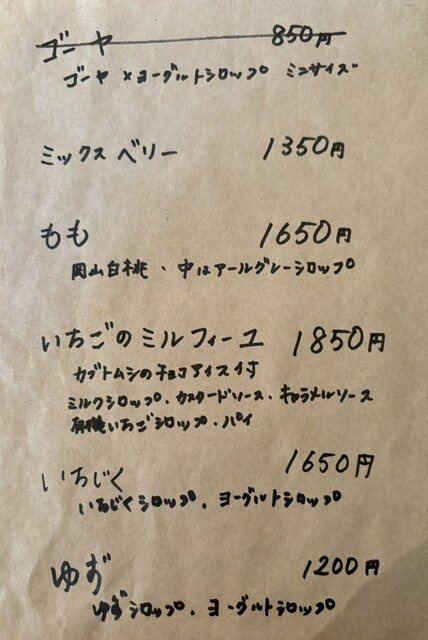 ゴーヤ 850円
ゴーヤ×ヨーグルトシロップ ミニサイズ
ミックスベリー 1350円
もも 1650円
岡山白桃・中はアールグレーシロップ
いちごのミルフィーユ 1850円
カブトムシのチョコアイス付
ミルクシロップ、カスタードソース・キャラメルソース
有機いちごシロップ・パイ
いちじく 1650円
いちじくシロップ、ヨーグルトシロップ
ゆず 1200円
ゆずシロップ、ヨーグルトシロップ